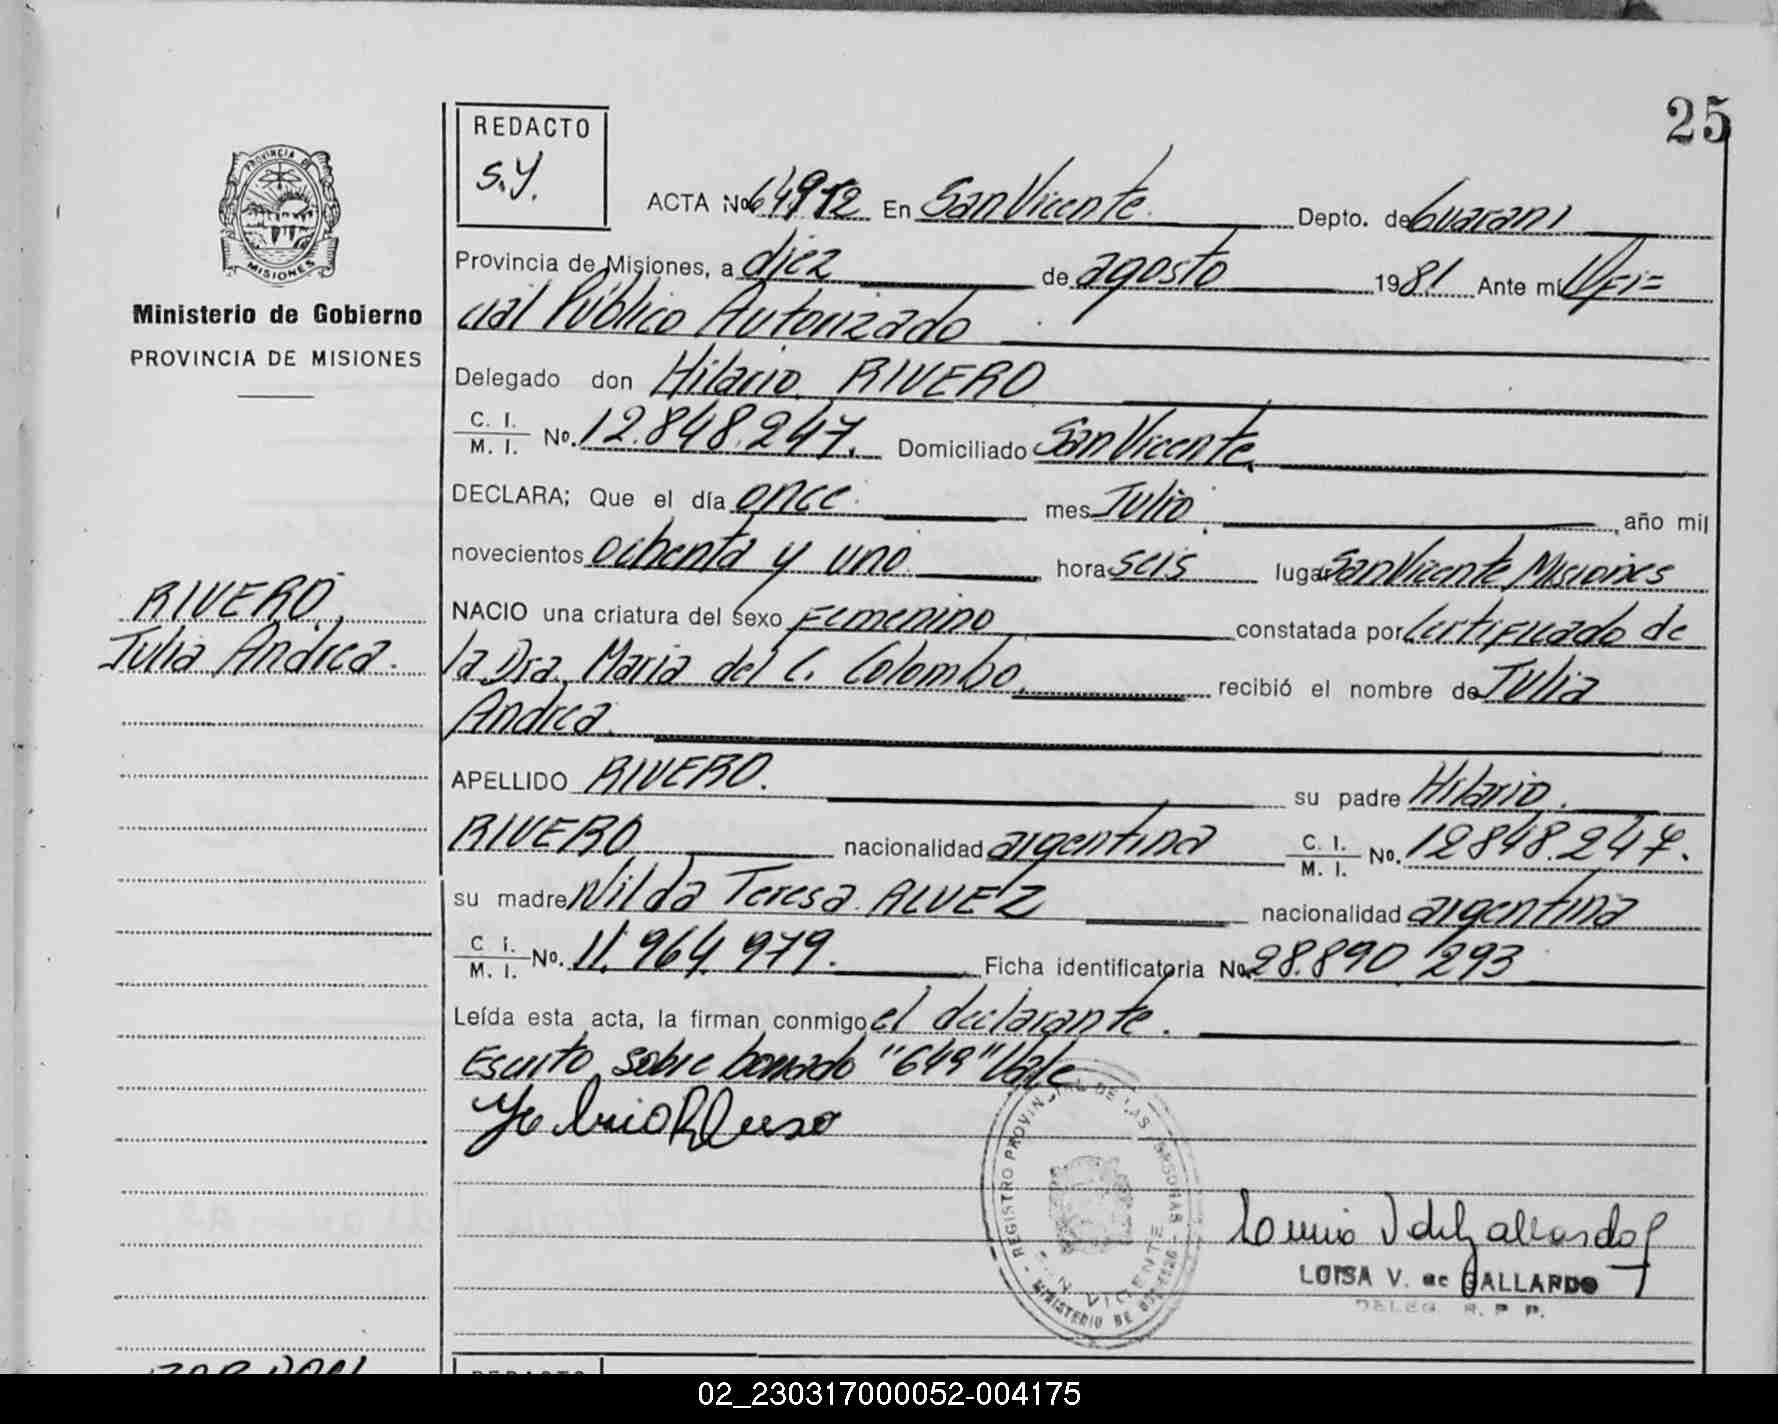 25
REDACTO
S.Y.
PROVINCIA DE
MISIONES
Ministerio de Gobierno
PROVINCIA DE MISIONES
RIVERO,
Julia Andrea.
ACTA Nº 64912 En San Vicente. Depto. de Guaraní
Provincia de Misiones, a diez de agosto 1981 Ante mí Ofi=
cial Público Autorizado
Delegado don Hilario RIVERO
C. I. / M. I. Nº. 12.848.247. Domiciliado San Vicente.
DECLARA; Que el día once mes Julio. año mil
novecientos ochenta y uno hora seis lugar San Vicente Misiones
NACIO una criatura del sexo Femenino constatada por Certificado de
la Dra. Maria del C. Colombo, recibió el nombre de Julia
Andrea.
APELLIDO RIVERO. su padre Hilario.
RIVERO nacionalidad argentina C. I. / M. I. Nº. 12848.247.
su madre Nilda Teresa ALVEZ nacionalidad argentina
C. I. / M. I. Nº. 11.964.979. Ficha identificatoria Nº 28.890 293
Leída esta acta, la firman conmigo el declarante.
Escrito sobre borrado "649" Vale
REGISTRO PROVINCIAL DE LAS PERSONAS
SAN VICENTE
MINISTERIO DE GOBIERNO
LUISA V. de GALLARDO
DELEG. R. P. P.
REDACTO
02_230317000052-004175